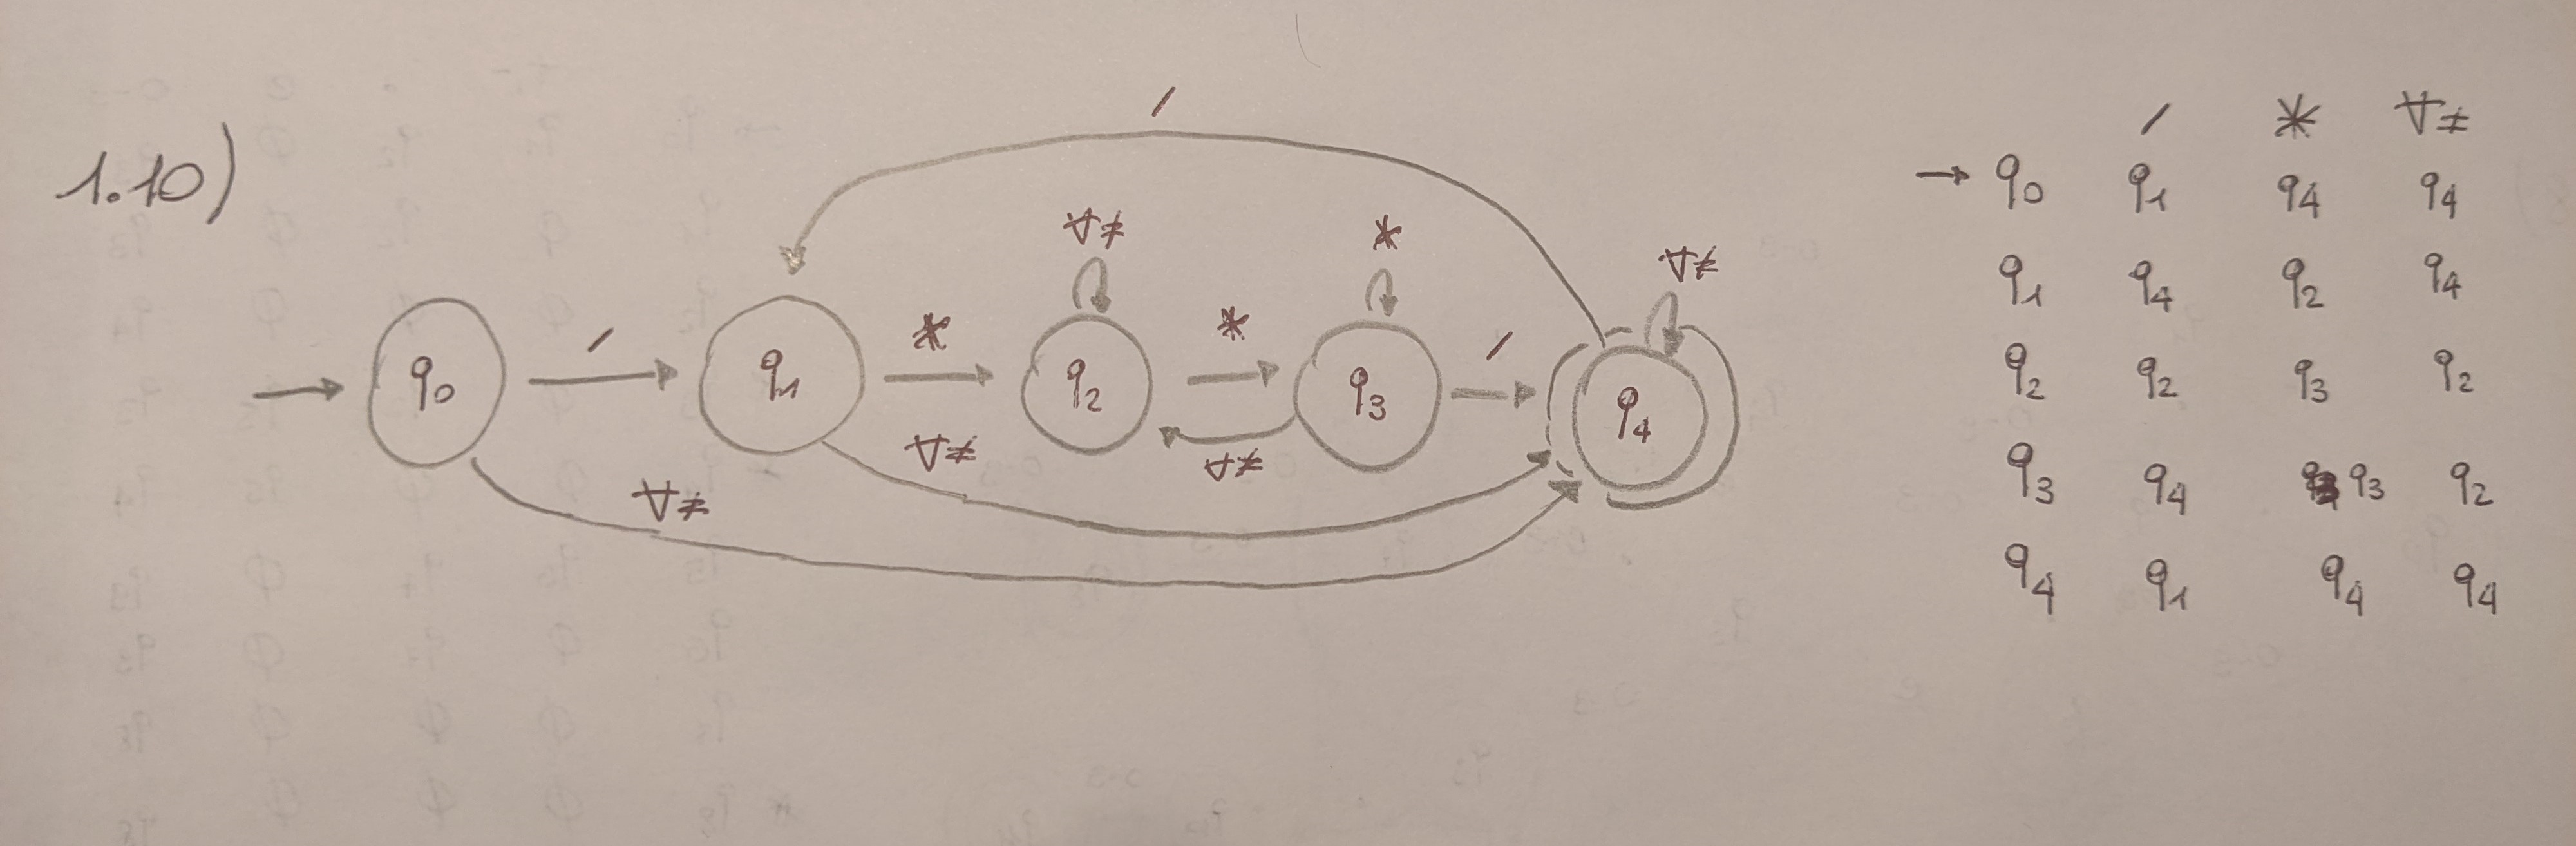 1.10)
/
∀≠ * ∀≠
q0 / q1 * q2 * q3 / q4
∀≠ ∀≠ ∀≠
/ * ∀≠
→ q0 q1 q4 q4
q1 q4 q2 q4
q2 q2 q3 q2
q3 q4 q3 q2
q4 q1 q4 q4